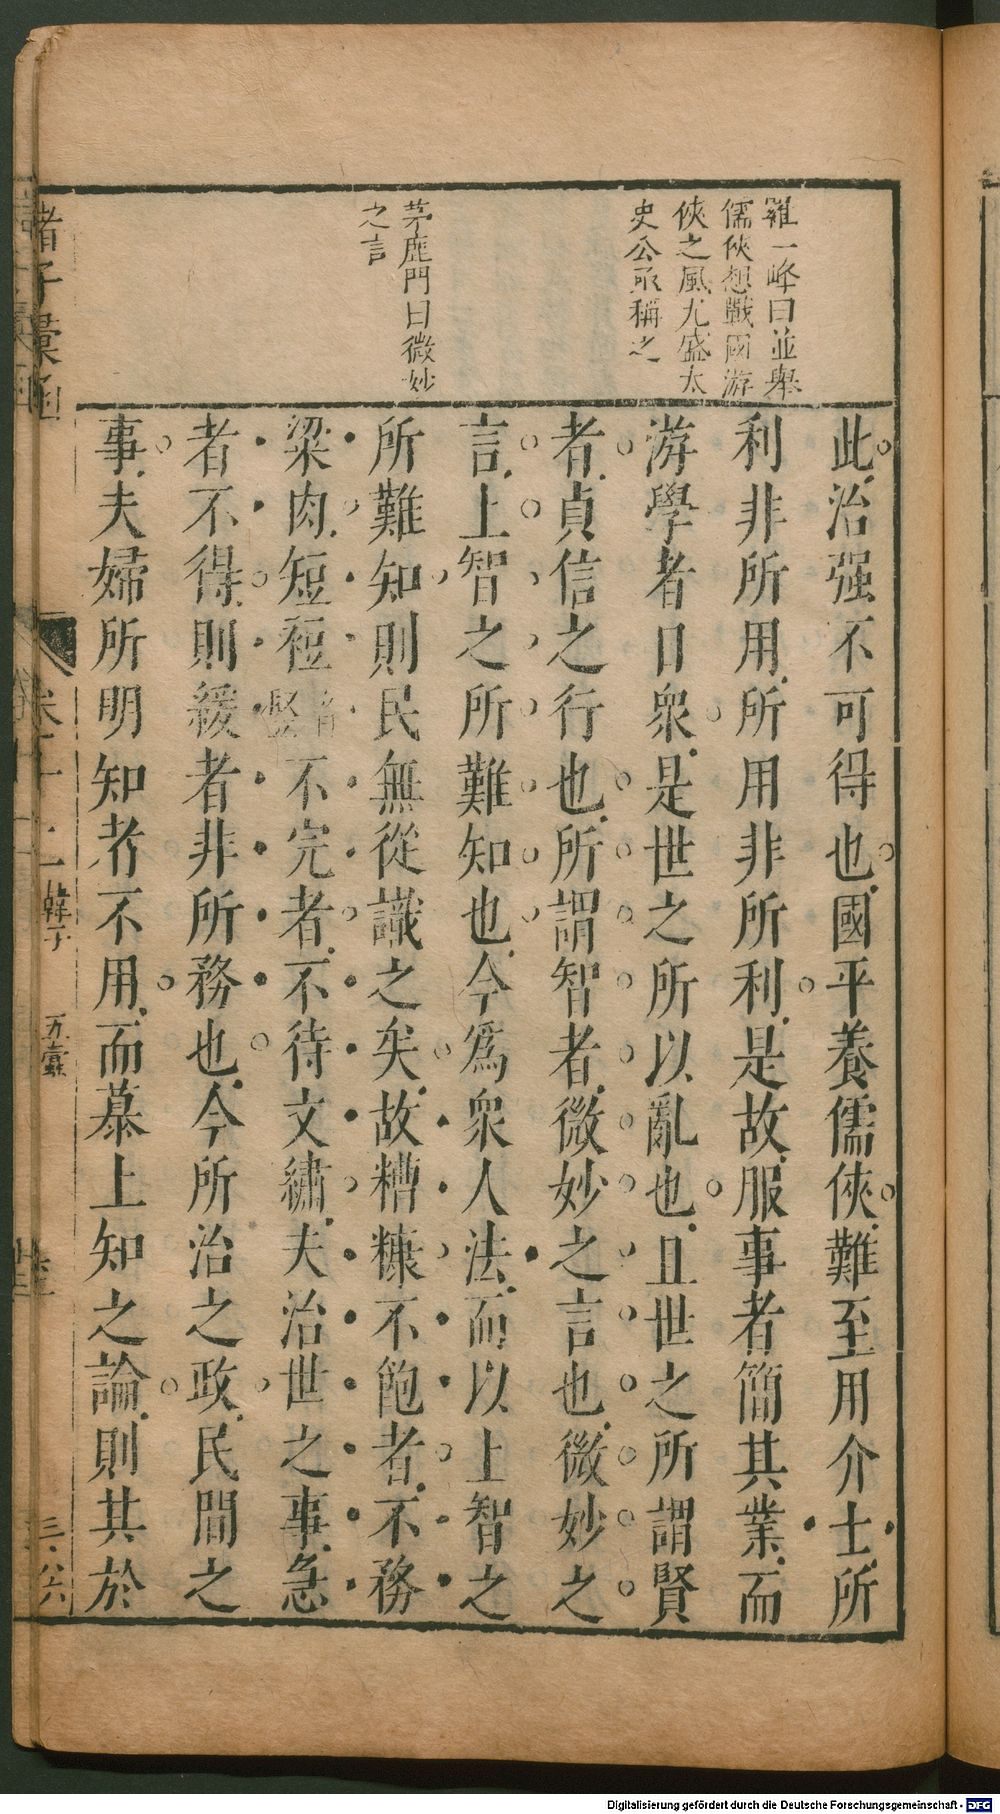 羅一峰曰並舉
儒俠想戰國游
俠之風尤盛太
史公所稱之
茅鹿門曰微妙
之言
此治强不可得也國平養儒俠難至用介士所
利非所用所用非所利是故服事者簡其業而
游學者日衆是世之所以亂也且世之所謂賢
者貞信之行也所謂智者微妙之言也微妙之
言上智之所難知也今爲衆人法而以上智之
所難知則民無從識之矣故糟糠不飽者不務
粱肉短裋不完者不待文繡夫治世之事急
者不得則緩者非所務也今所治之政民間之
事夫婦所明知者不用而慕上知之論則其於
諸子彙函
卷十一
韓子
五蠹
Digitalisierung gefördert durch die Deutsche Forschungsgemeinschaft - DFG